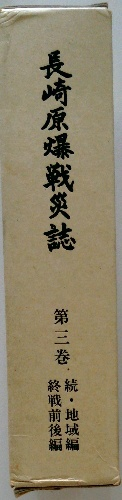 長崎原爆戦災誌
第三巻
続・地域編
終戦前後編